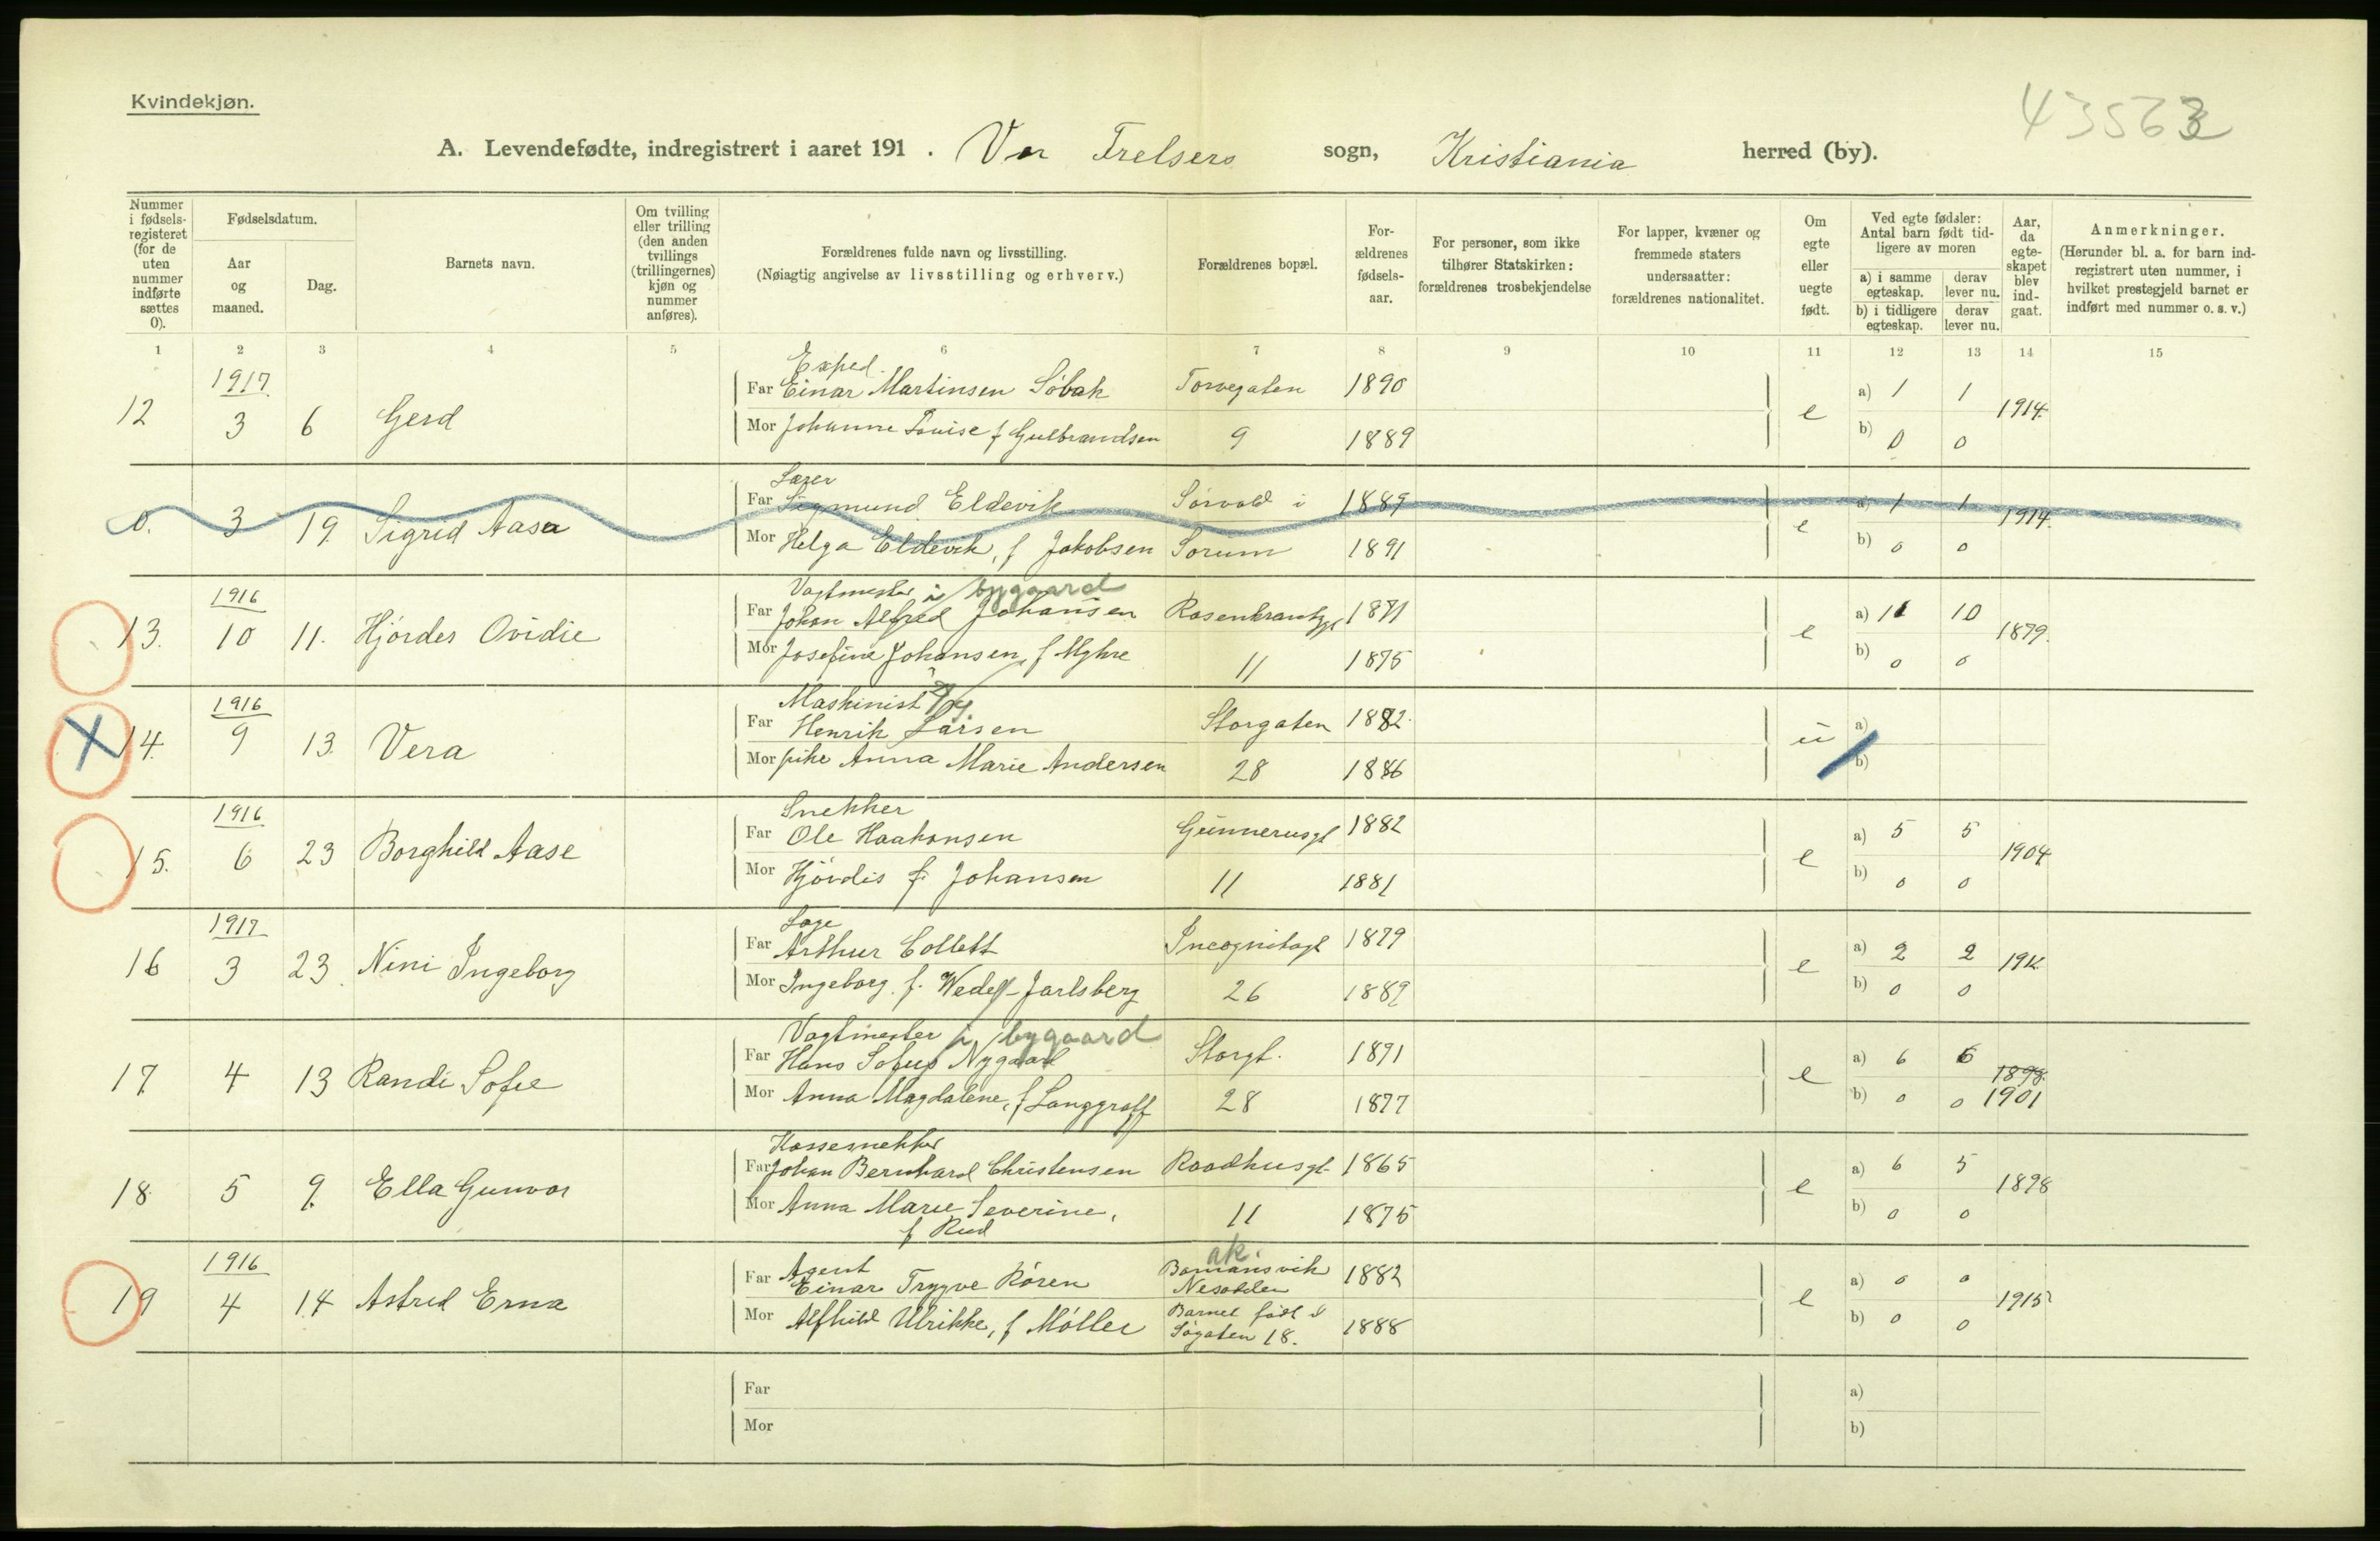 Kvindekjøn.
43563
A. Levendefødte, indregistrert i aaret 191 . Vor Frelsers sogn, Kristiania herred (by).
Nummer i fødsels-registeret (for de uten nummer indførte sættes 0).
Fødselsdatum.
Aar og maaned.
Dag.
Barnets navn.
Om tvilling eller trilling (den anden tvillings (trillingernes) kjøn og nummer anføres).
Forældrenes fulde navn og livsstilling.
(Nøiagtig angivelse av livsstilling og erhverv.)
Forældrenes bopæl.
For-ældrenes fødsels-aar.
For personer, som ikke tilhører Statskirken: forældrenes trosbekjendelse
For lapper, kvæner og fremmede staters undersaatter: forældrenes nationalitet.
Om egte eller uegte født.
Ved egte fødsler: Antal barn født tid-ligere av moren
a) i samme egteskap. derav lever nu.
b) i tidligere egteskap. derav lever nu.
Aar, da egte-skapet blev ind-gaat.
Anmerkninger.
(Herunder bl. a. for barn ind-registrert uten nummer, i hvilket prestegjeld barnet er indført med nummer o. s. v.)
1 2 3 4 5 6 7 8 9 10 11 12 13 14 15
1917 Exped.
Far Einar Martinsen Søbak Torvegaten 1890 a) 1 1
12 3 6 Gerd e 1914.
Mor Johanne Louise f Gulbrandsen 9 1889 b) 0 0
Far Sigmund Eldevik Sørvald i 1889 a) 1 1
0. 3 19. Sigrid Aasa e 1914.
Mor Helga Eldevik, f Jakobsen Sørum 1891 b) 0 0
1916 Vagtmester i bygaard
Far Johan Alfred Johansen Rosenkrantzgt 1871 a) 11 10
13. 10 11. Hjørdes Ovidie e 1879.
Mor Josefine Johansen, f Myhre 11 1875 b) 0 0
1916 Maskinist
Far Henrik Larsen Storgaten 1882. a)
14. 9 13. Vera u
Mor pike Anna Marie Andersen 28 1886 b)
1916 Snekker
Far Ole Haakonsen Gunnerusgt 1882 a) 5 5
15. 6 23 Borghild Aase e 1904
Mor Hjørdis f. Johansen 11 1881 b) 0 0
1917
Far Arthur Collett Incognitogt 1879 a) 2 2
16 3 23. Nini Ingeborg e 1912
Mor Ingeborg. f. Wedel-Jarlsberg 26 1889 b) 0 0
Vagtmester i bygaard
Far Hans Sofus Nygaard Storgt. 1891 a) 6 6
17. 4 13 Randi Sofie e 1898.
Mor Anna Magdalene, f Langgraff 28 1877 b) 0 0 1901
Kassesnekker
Far Johan Bernhard Christensen Raadhusgt. 1865 a) 6 5
18. 5 9. Ella Gunvor e 1898
Mor Anna Marie Severine, 11 1875 b) 0 0
f Rud
1916 Agent ak.
Far Einar Trygve Røren Bomansvik Nesodden 1882 a) 0 0
19 4 14 Astrid Erna e 1915
Mor Alfhild Ulrikke, f Møller Barnet født i Søgaten 18. 1888 b) 0 0
Far a)
Mor b)